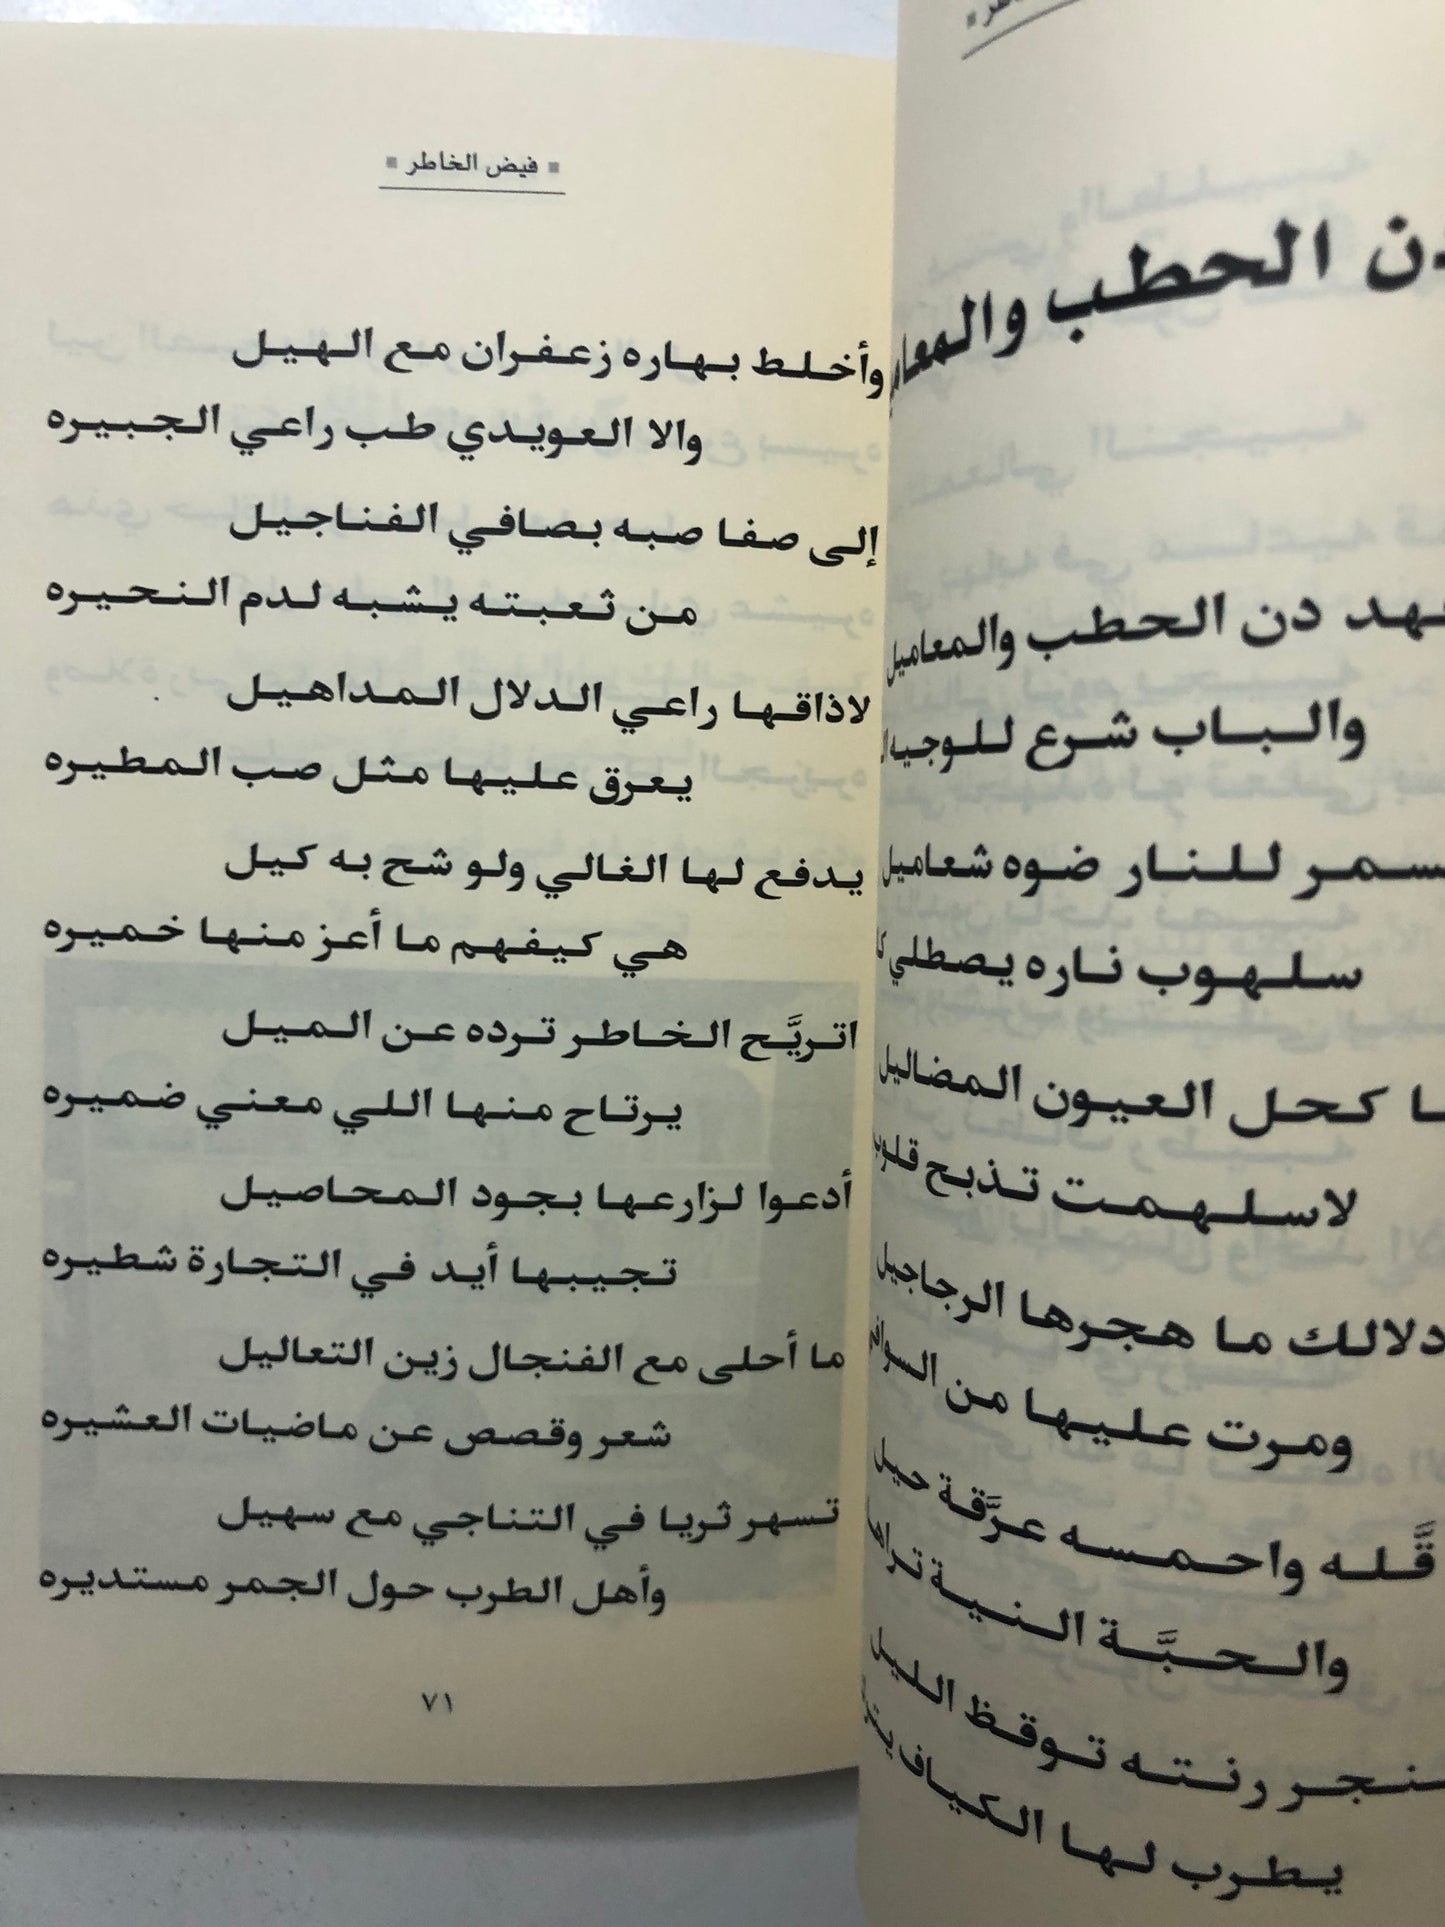 دن الحطب
دن الحطب والمعاميل
والباب شرع
للنار ضوه شعاميل
سلهوب ناره يصطلي
كحل العيون المضاليل
لاسلهمت تذبح
دلالك ما هجرها الرجاجيل
ومرت عليها من
واحمسه عرَّقة حيل
والحبَّة النية
رنته توقظ الليل
يطرب لها الكياف
▪ فيض الخاطر ▪
وأخلط بهاره زعفران مع الهيل
والا العويدي طب راعي الجبيره
إلى صفا صبه بصافي الفناجيل
من ثعبته يشبه لدم النحيره
لاذاقها راعي الدلال المداهيل
يعرق عليها مثل صب المطيره
يدفع لها الغالي ولو شح به كيل
هي كيفهم ما أعز منها خميره
اتريَّح الخاطر ترده عن الميل
يرتاح منها اللي معني ضميره
أدعوا لزارعها بجود المحاصيل
تجيبها أيد في التجارة شطيره
ما أحلى مع الفنجال زين التعاليل
شعر وقصص عن ماضيات العشيره
تسهر ثريا في التناجي مع سهيل
وأهل الطرب حول الجمر مستديره
٧١